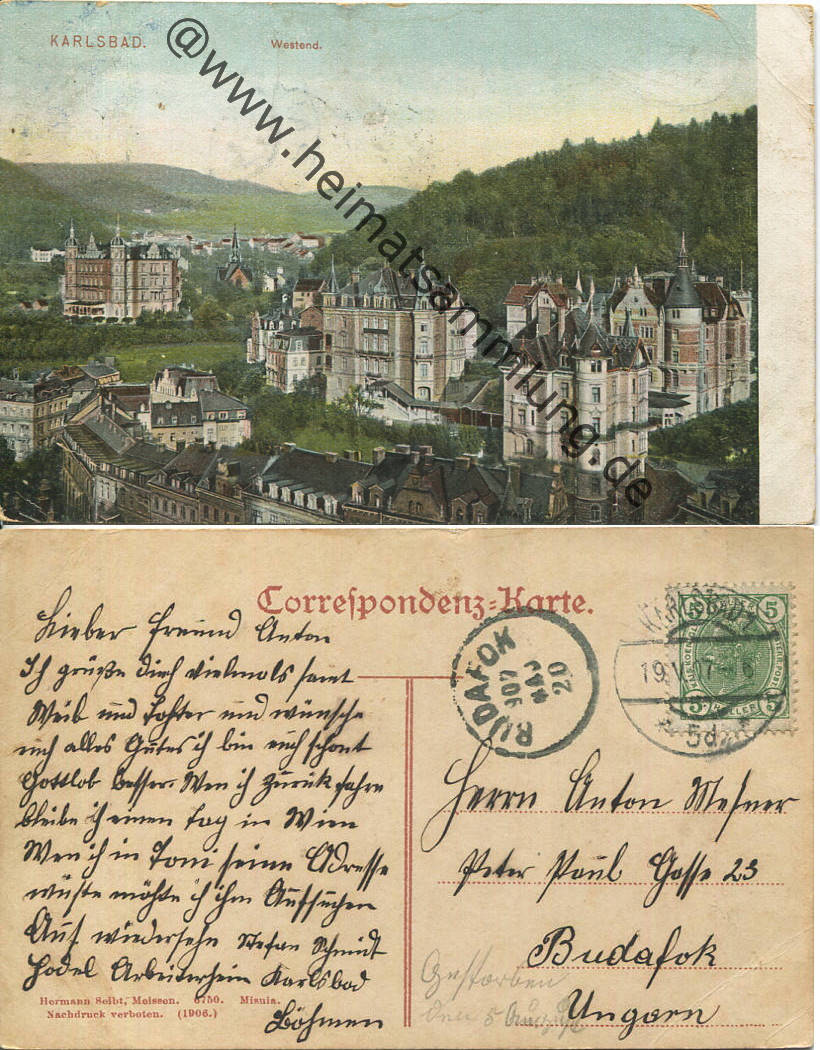 KARLSBAD.
Westend.
@www.heimatsammlung.de
Correspondenz-Karte.
Lieber Freund Anton
Ich grüße Dich vielmols samt
Weib und Tohter und wünsche
euch alles Gutes ich bin euch schont
Gottlob besser. Wen ich zurük fahre
bleibe ich einen Tag in Wien
Wen ich in Toni seine Adresse
wüste möhte ich ihm Aufsuchen
Auf wiedersehn Stefan Schmidt
Hodel Arbeiterheim Karlsbad
Böhmen
Hermann Seibt, Meissen. 6750. Misnia.
Nachdruck verboten. (1906.)
BUDAFOK
907
MAJ
20
19.V.07
5d
5 5
5 HELLER 5
Herrn Anton Mesner
Peter Paul Gasse 23
Budafok
Ungarn
Gestorben
den 5